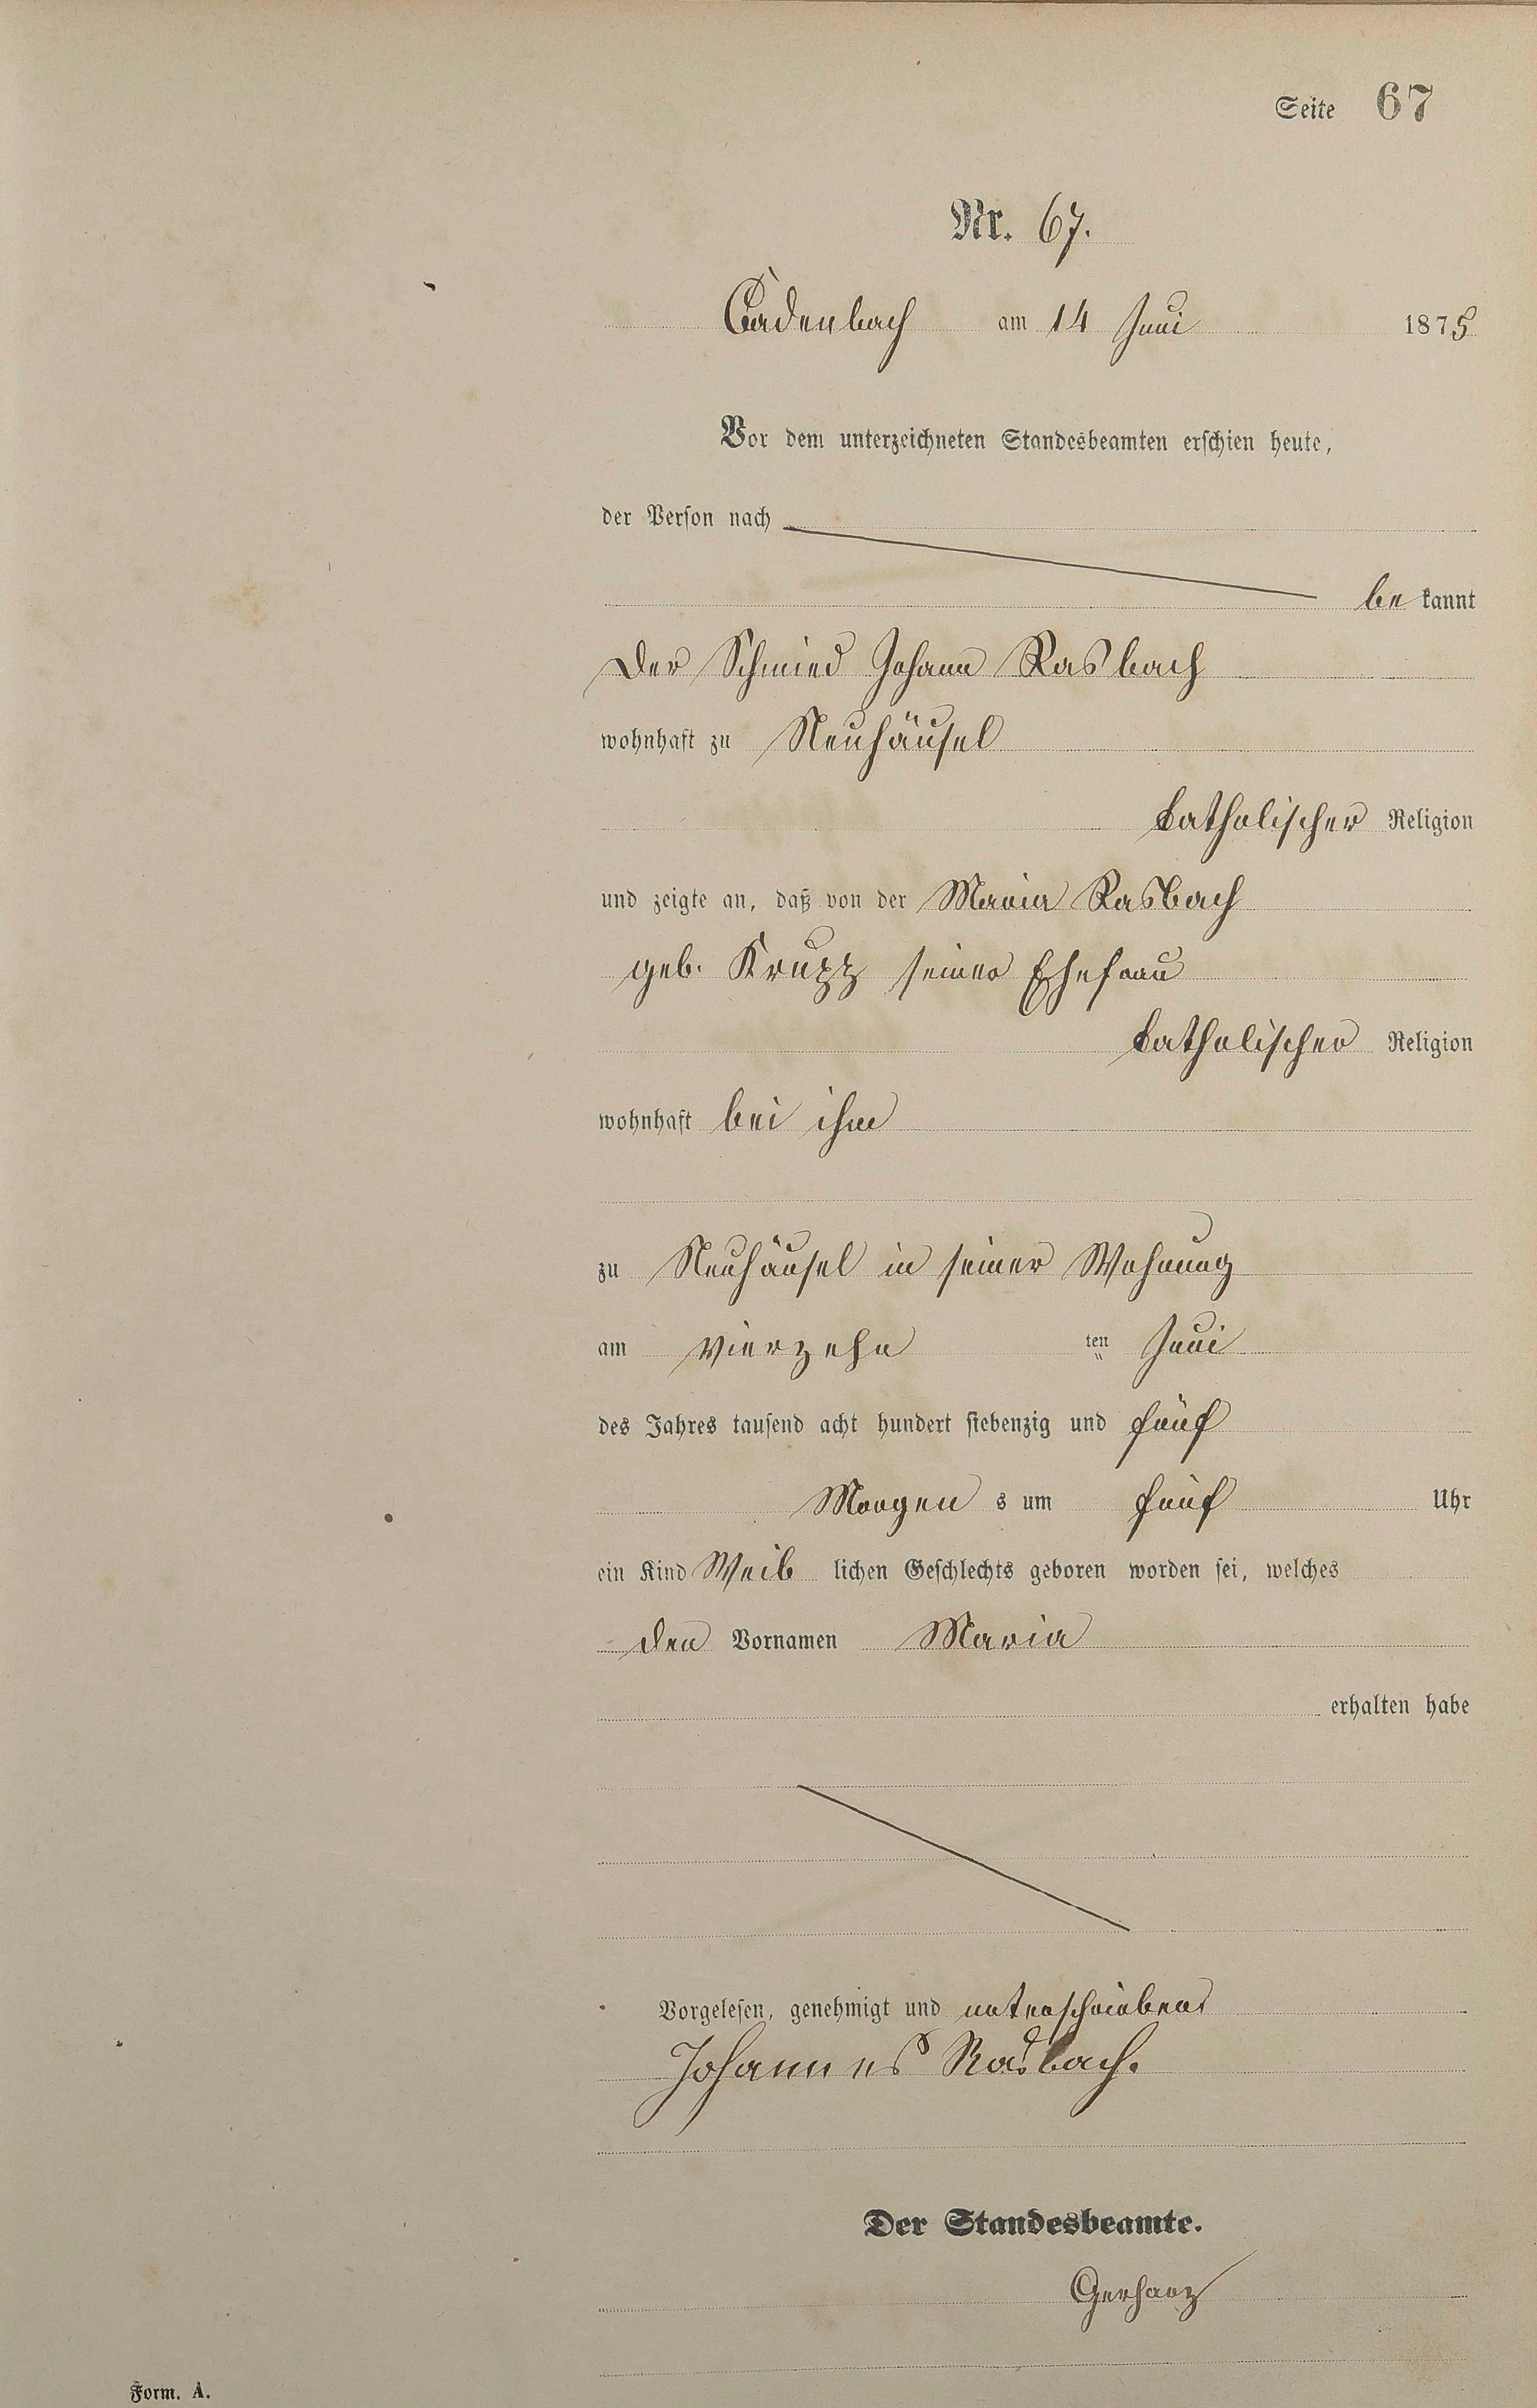 Seite 67
Nr. 67.
Cadenbach am 14 Juni 1875
Vor dem unterzeichneten Standesbeamten erschien heute,
der Person nach
be kannt
Der Schmied Johann Rasbach
wohnhaft zu Neuhäusel
katholischer Religion
und zeigte an, daß von der Maria Rasbach
geb. Krupp seiner Ehefrau
katholischer Religion
wohnhaft bei ihm
zu Neuhäusel in seiner Wohnung
am vierzehn ten Juni
des Jahres tausend acht hundert siebenzig und fünf
Morgen s um fünf Uhr
ein Kind Weib lichen Geschlechts geboren worden sei, welches
den Vornamen Maria
erhalten habe
Vorgelesen, genehmigt und unterschrieben
Johannes Rasbach.
Der Standesbeamte.
Gerharz
Form. A.